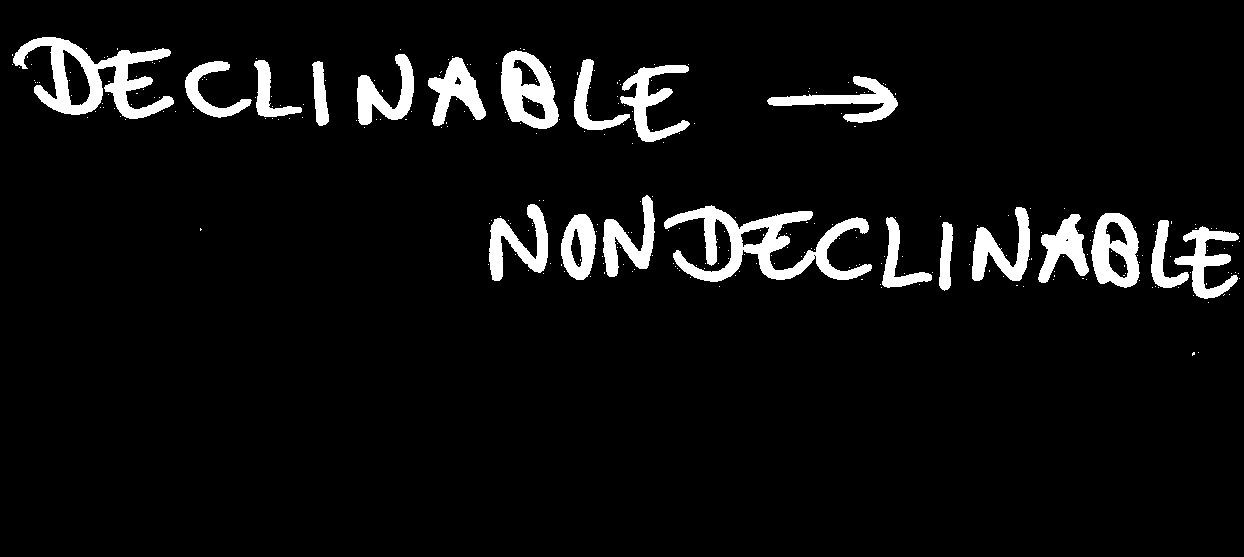 DECLINABLE →
NONDECLINABLE